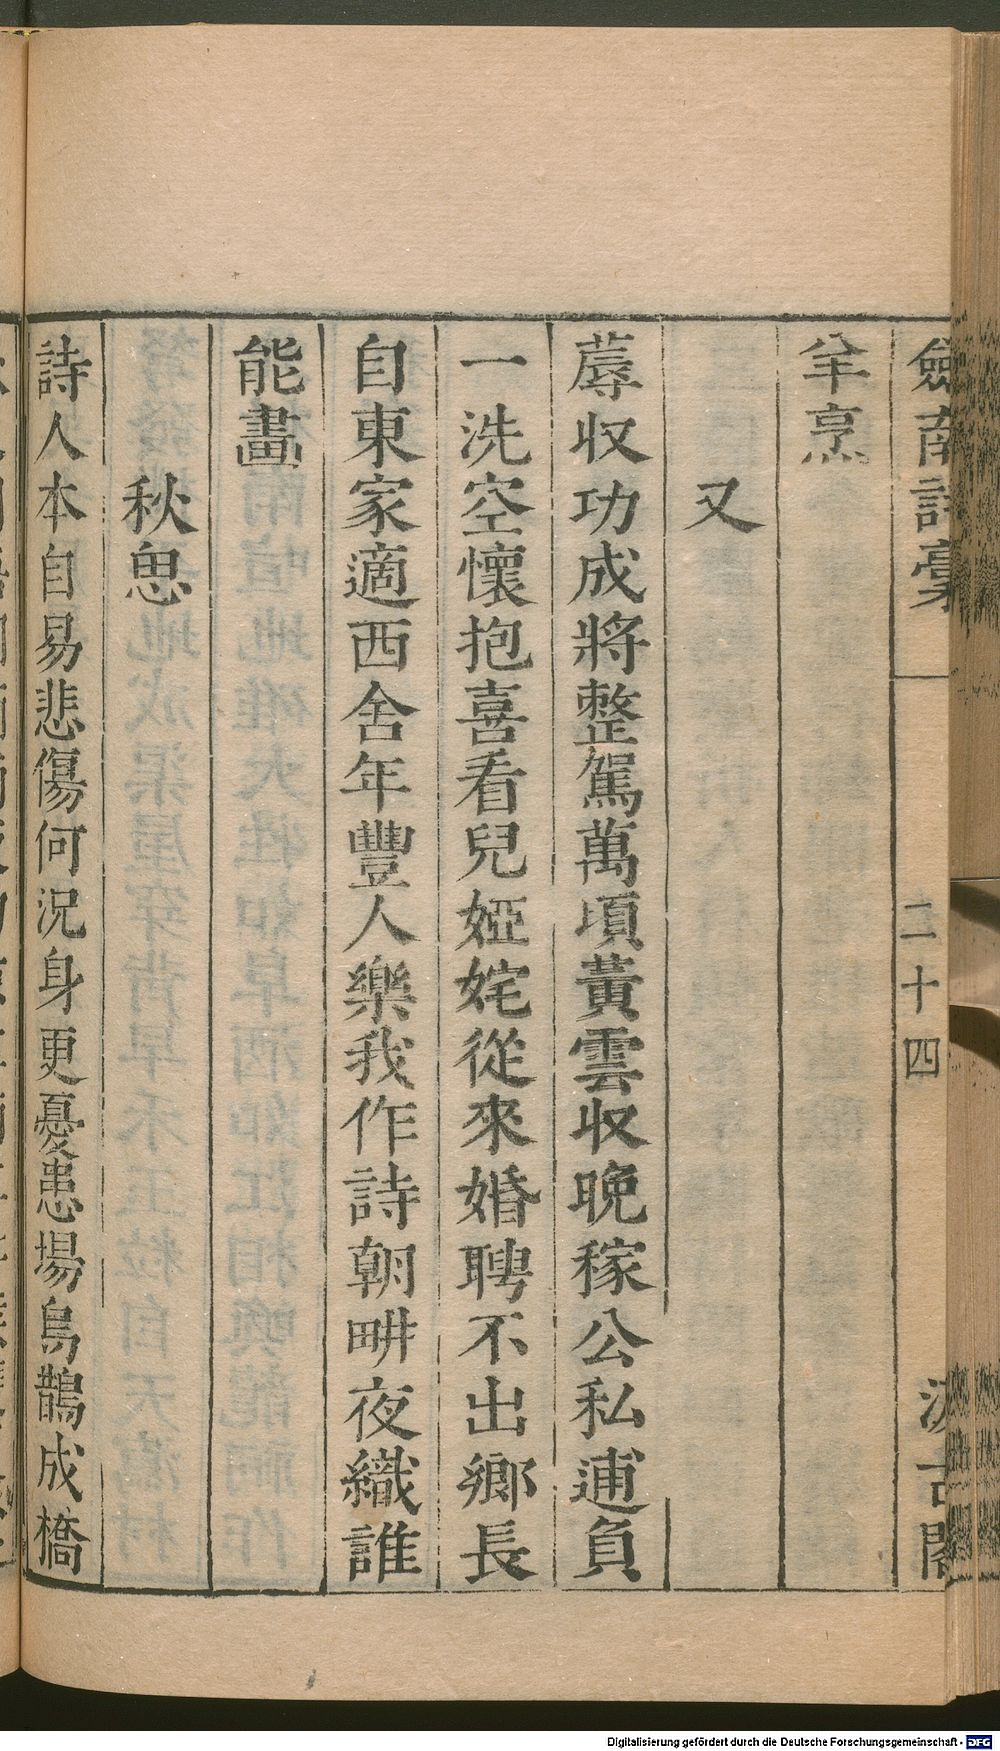 劒南詩稾
二十四
汲古閣
羊烹
又
蓐收功成將整駕萬頃黃雲收晚稼公私逋負
一洗空懷抱喜看兒婭姹從來婚聘不出鄉長
自東家適西舍年豐人樂我作詩朝畊夜織誰
能畫
秋思
詩人本自易悲傷何況身更憂患場烏鵲成橋
Digitalisierung gefördert durch die Deutsche Forschungsgemeinschaft - DFG